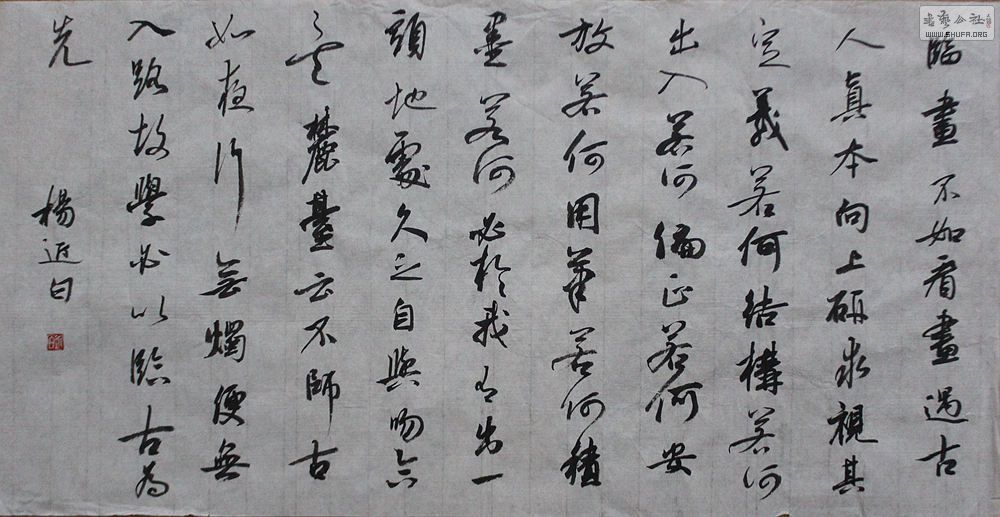 臨畫不如看畫遇古
人真本向上研求視其
定義若何結構若何
出入若何偏正若何安
放若何用筆若何積
墨若何必於我有出一
頭地處久之自與吻合
矣麓臺云不師古
如夜行無燭便無
入路故學必以臨古為
先
楊近
书艺公社
WWW.SHUFA.ORG